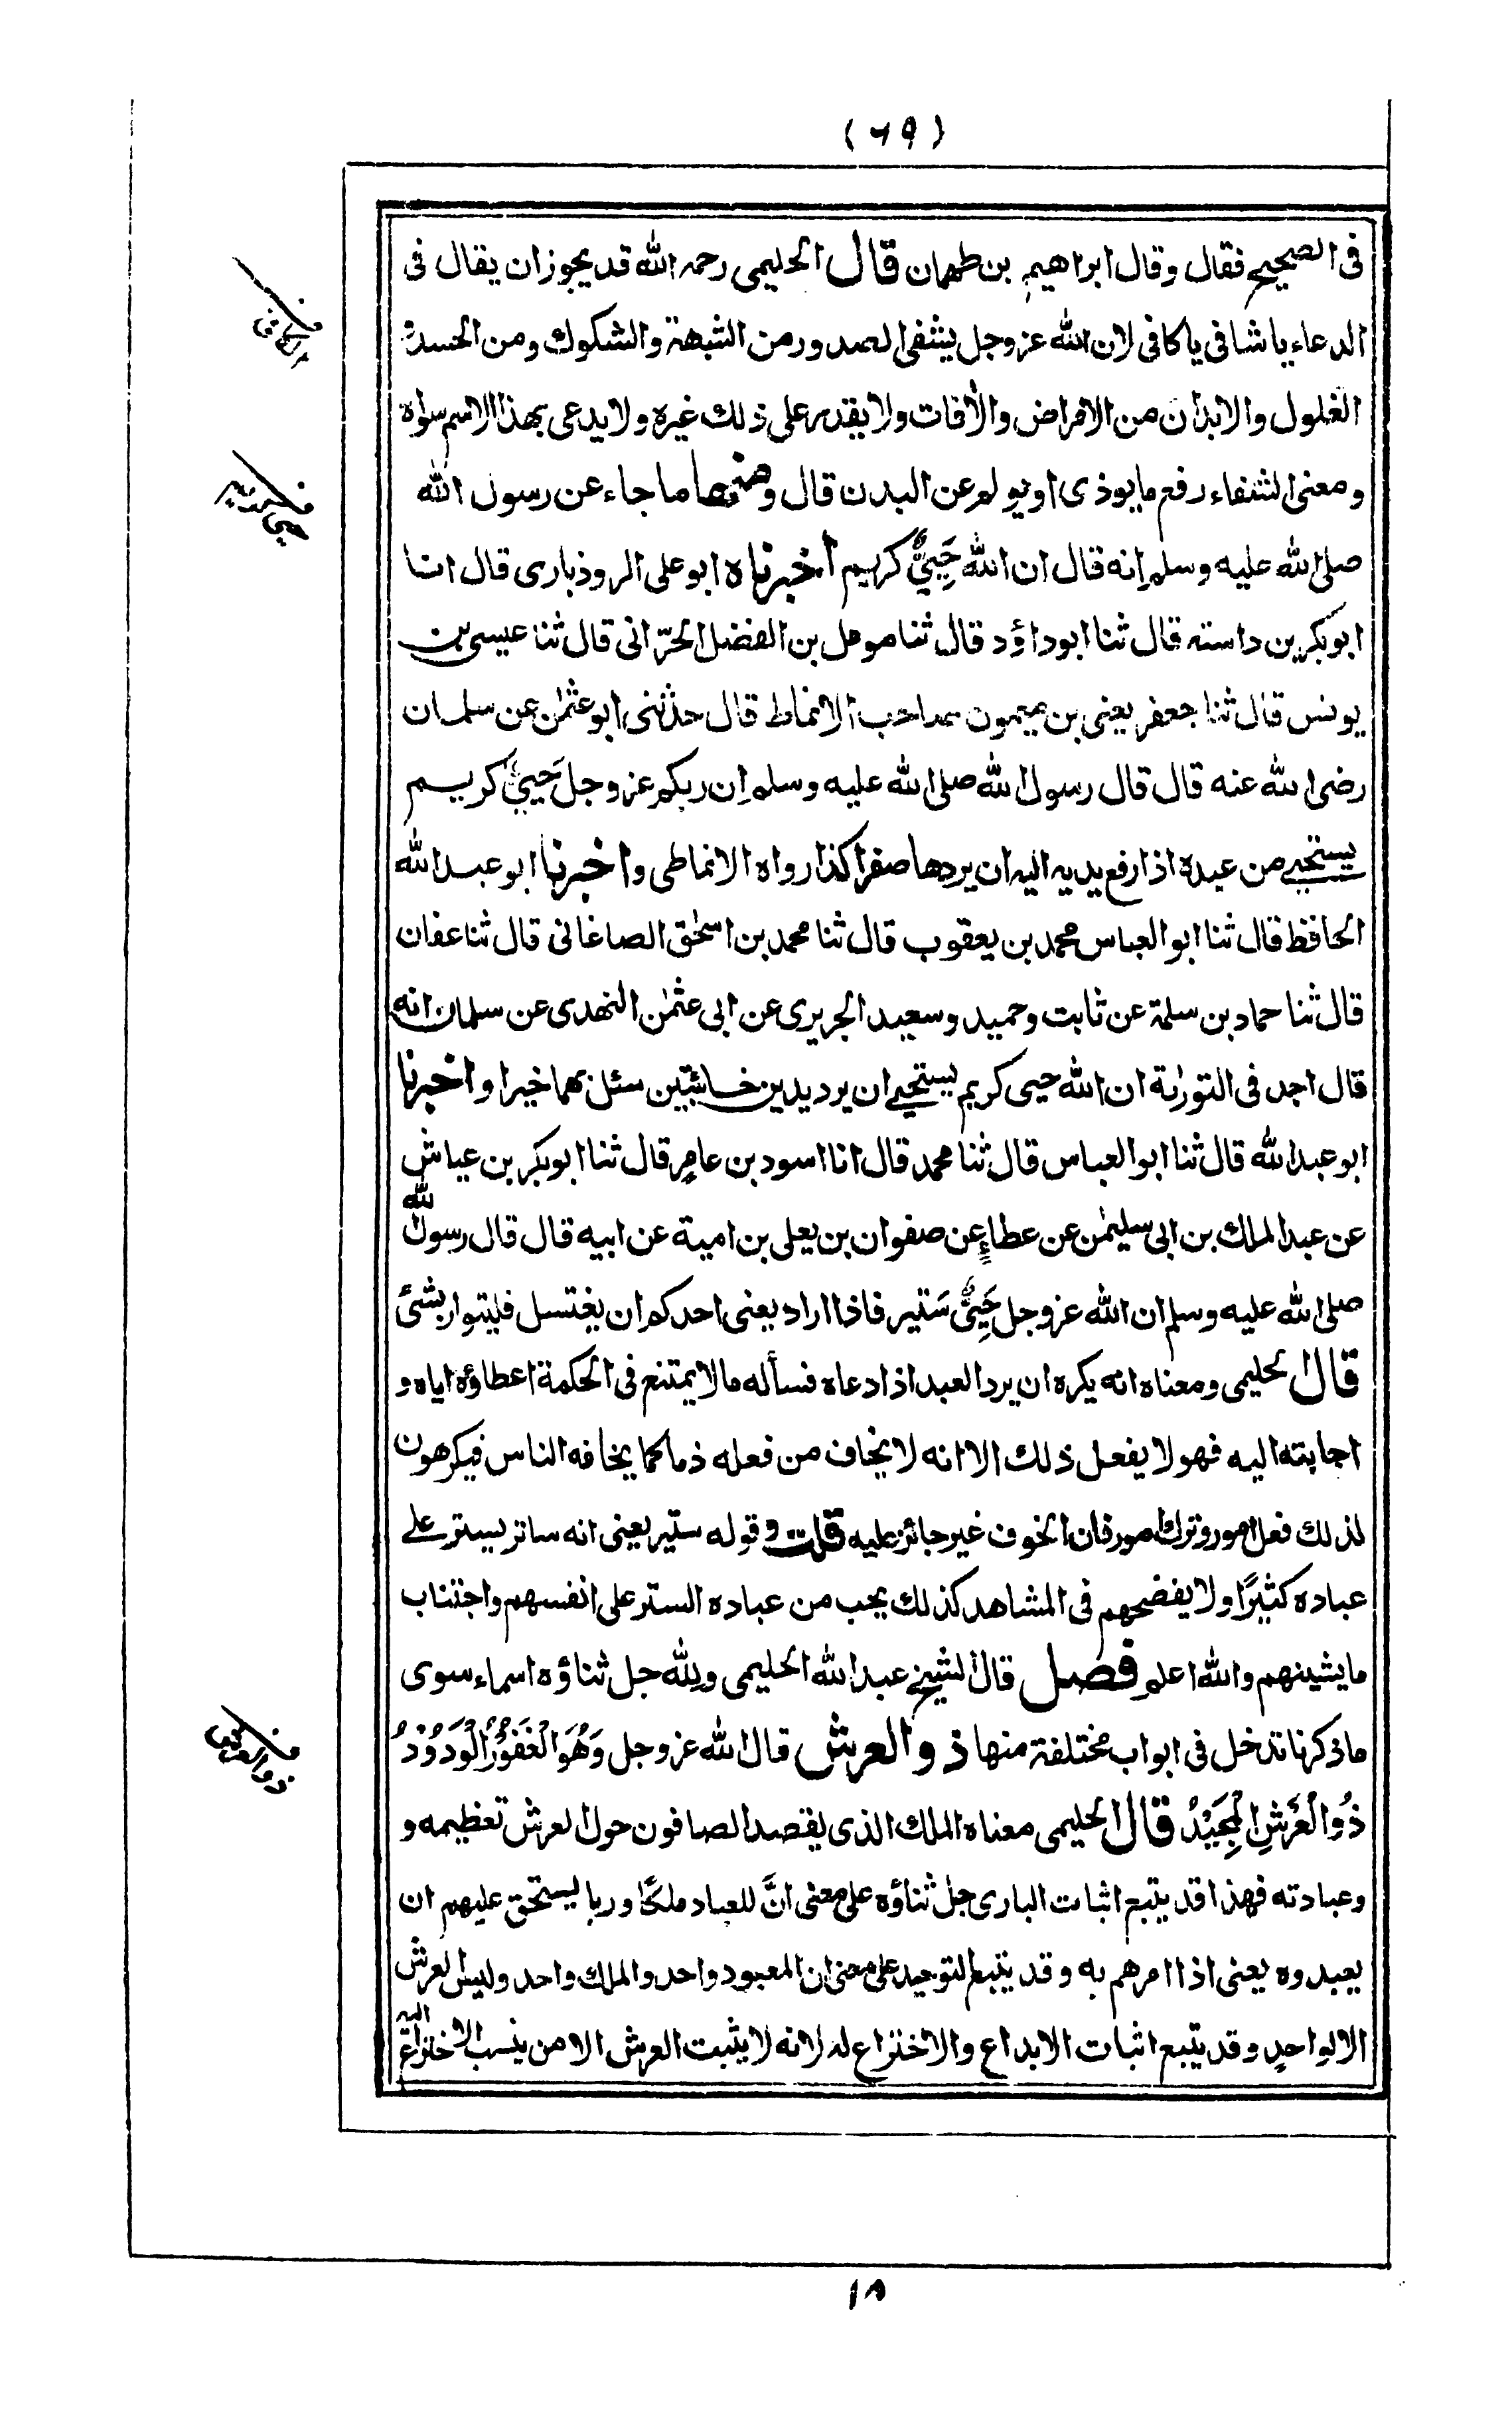 (٦٩)
فى الصحيح فقال وقال ابراهيم بن طهمان قال الحليمى رحمه الله قد يجوز ان يقال فى
الدعاء يا شافى يا كافى لان الله عز وجل يشفى الصدور من الشبهة والشكوك ومن الحسد و
الغلول والابدان من الامراض والأفات ولا يقدر على ذلك غيره ولا يدعى بهذا الاسم سواه
ومعنى الشفاء رفع ما يوذى او يولم عن البدن قال ومنها ما جاء عن رسول الله
صلى الله عليه وسلم انه قال ان الله حَيِىٌّ كريم اخبرناه ابو على الروذبارى قال انا
ابو بكر بن داسته قال ثنا ابو داؤد قال ثنا مومل بن الفضل الحرّانى قال ثنا عيسى بن
يونس قال ثنا جعفر يعنى بن ميمون صاحب الانماط قال حدثنى ابو عثمٰن عن سلمان
رضى الله عنه قال قال رسول الله صلى الله عليه وسلم ان ربكم عز وجل حَيِىٌّ كريم
يستحيى من عبده اذا رفع يديه اليه ان يردها صفرا كذا رواه الانماطى واخبرنا ابو عبد الله
الحافظ قال ثنا ابو العباس محمد بن يعقوب قال ثنا محمد بن اسحٰق الصاغانى قال ثنا عفان
قال ثنا حماد بن سلمة عن ثابت وحميد وسعيد الجريرى عن ابى عثمٰن النهدى عن سلمان انه
قال اجد فى التورٰىة ان الله حيى كريم يستحيى ان يرد يدين خائبتين سئل بهما خيرا واخبرنا
ابو عبد الله قال ثنا ابو العباس قال ثنا محمد قال انا اسود بن عامر قال ثنا ابو بكر بن عياش
عن عبد الملك بن ابى سليمٰن عن عطاءٍ عن صفوان بن يعلى بن امية عن ابيه قال قال رسول الله
صلى الله عليه وسلم ان الله عز وجل حَيِىٌّ سَتير فاذا اراد يعنى احدكم ان يغتسل فليتوار بشئ
قال الحليمى ومعناه انه يكره ان يرد العبد اذا دعاه فسأله ما لا يمتنع فى الحكمة اعطاؤه اياه و
اجابته اليه فهو لا يفعل ذلك الا انه لا يخاف من فعله ذما كما يخافه الناس فيكرهون
لذلك فعل امور وترك امور فان الخوف غير جائز عليه قلت وقوله ستير يعنى انه ساتر يستر على
عباده كثيرًا ولا يفضحهم فى المشاهد كذلك يحب من عباده الستر على انفسهم واجتناب
ما يشينهم والله اعلم فصل قال الشيخ عبد الله الحليمى ولله جل ثناؤه اسماء سوى
ما ذكرنا تدخل فى ابواب مختلفة منها ذو العرش قال الله عز وجل وَهُوَ الْغَفُوْرُ الْوَدُوْدُ
ذُو الْعَرْشِ الْمَجِيْدُ قال الحليمى معناه الملك الذى يقصد الصافون حول العرش تعظيمه و
وعبادته فهذا قد يتبع اثبات البارى جل ثناؤه على معنى انَّ للعباد ملكًا وربا يستحق عليهم ان
يعبدوه يعنى اذا امرهم به وقد يتبع التوحيد على معنى ان المعبود واحد والملك واحد وليس العرش
الا لواحدٍ وقد يتبع اثبات الابداع والاختراع له لانه لا يثبت العرش الا من ينسب الاختراع اليه
الكافى
ذو العرش
١٨